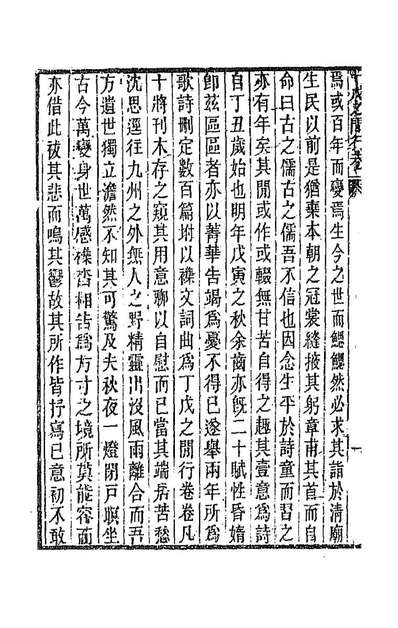 焉或百年而變焉生今之世而鰓鰓然必求其詣於清廟
生民以前是猶棄本朝之冠裳縫掖其躬章甫其首而自
命曰古之儒古之儒吾不信也因念生平於詩童而習之
亦有年矣其閒或作或輟無甘苦自得之趣其壹意為詩
自丁丑歲始也明年戊寅之秋余齒亦旣二十賦性昏惰
卽茲區區者亦以菁華告竭為憂不得已遂舉兩年所為
歌詩刪定數百篇坿以襍文詞曲為丁戊之閒行卷卷凡
十將刊木存之窺其用意聊以自慰而已當其端病苦愁
沈思逕往九州之外無人之野精靈出沒風雨離合而吾
方遺世獨立澹然不知其可驚及夫秋夜一燈閉戶瞑坐
古今萬變身世萬感襍沓相告爲方寸之境所莫能容而
亦借此祓其悲而鳴其鬱故其所作皆抒寫已意初不敢